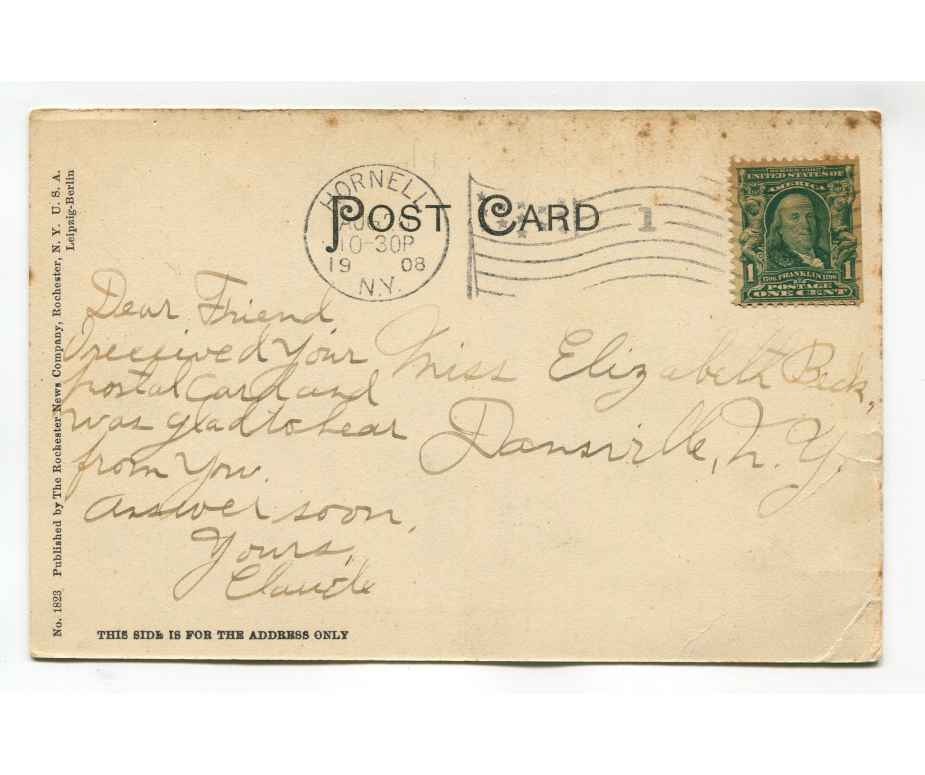 No. 1823 Published by The Rochester News Company, Rochester, N. Y. U. S. A.
Leipzig-Berlin
HORNELL
10-30P
19 08
N.Y.
POST CARD
1
SERIES 1902
UNITED STATES OF
AMERICA
1 1
FRANKLIN
POSTAGE
ONE CENT
Dear Friend
I received your
postal card and
was glad to hear
from you.
answer soon,
Yours,
Claude
Miss Elizabeth Beck,
Dansville, N. Y.
THIS SIDE IS FOR THE ADDRESS ONLY